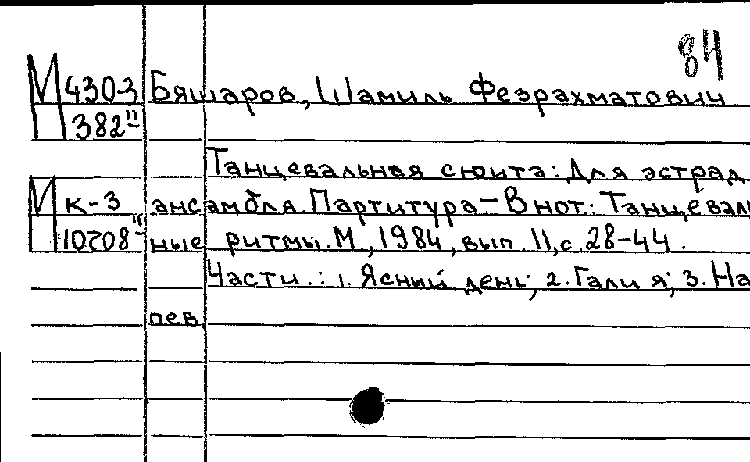 84
М 430-3 Бяшаров, Шамиль Фезрахматович
П 382"
Танцевальная сюита: Для эстрад.
М к-3 ансамбля. Партитура – В нот.: Танцеваль
П 10208" ные ритмы. М., 1984, вып. 11, с. 28-44.
Части.: 1. Ясный день; 2. Галия; 3. На
пев.